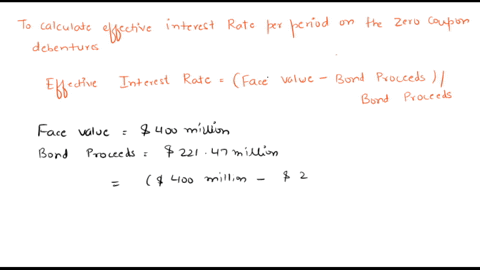 To calculate effective interest Rate per period on the zero coupon
debentures
Effective Interest Rate = (Face value - Bond Proceeds) /
Bond Proceeds
Face value = $ 400 million
Bond Proceeds = $ 221.47 million
= ($ 400 million - $ 2